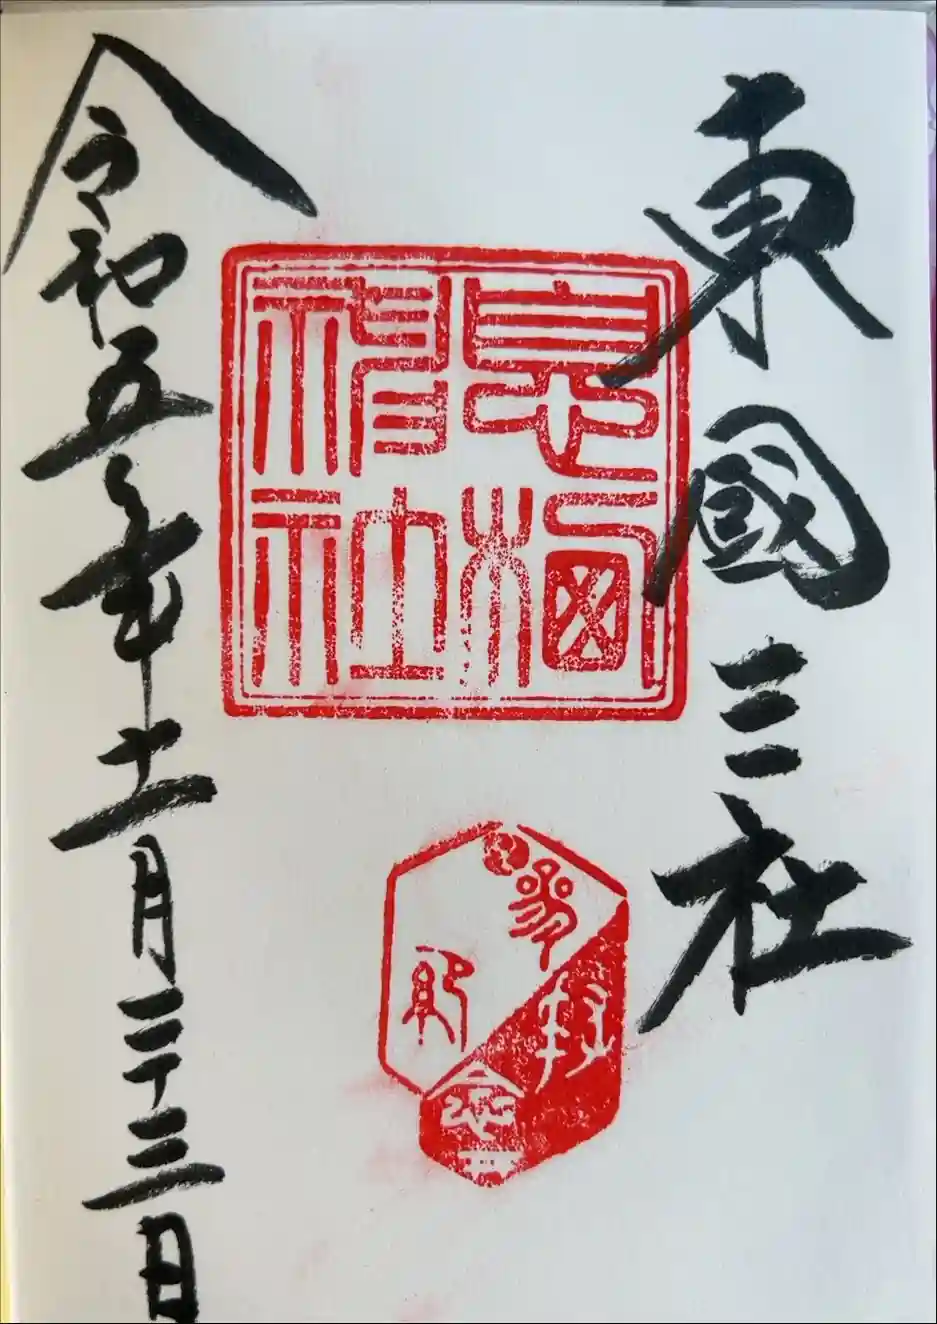 東國三社
息栖神社
令和五年十一月二十三日